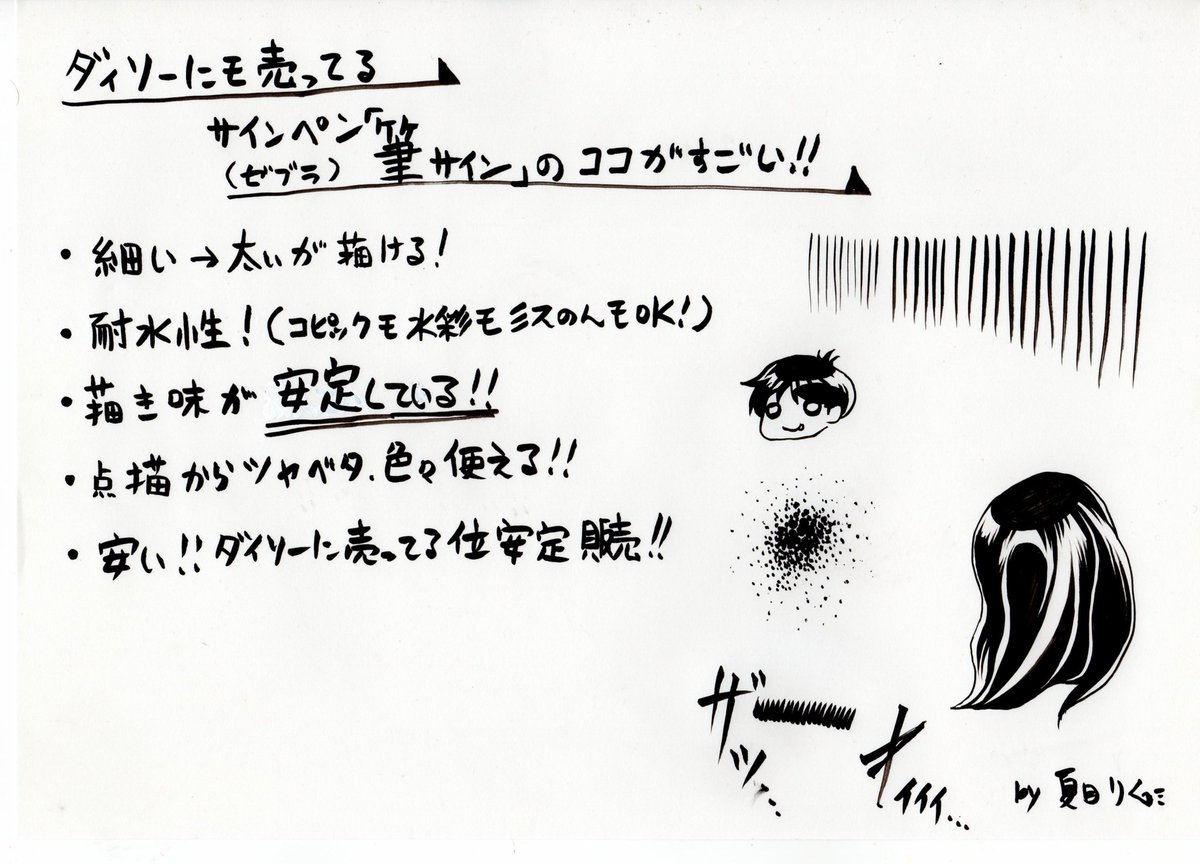 ダイソーにも売ってる
サインペン「筆サイン」のココがすごい!!
(ゼブラ)
・細い→太いが描ける!
・耐水性!(コピックも水彩もミスのんもOK!)
・描き味が安定している!!
・点描からツヤベタ、色々使える!!
・安い!!ダイソーに売ってる位安定販売!!
ザッ…
オイイイ…
by 夏目りく